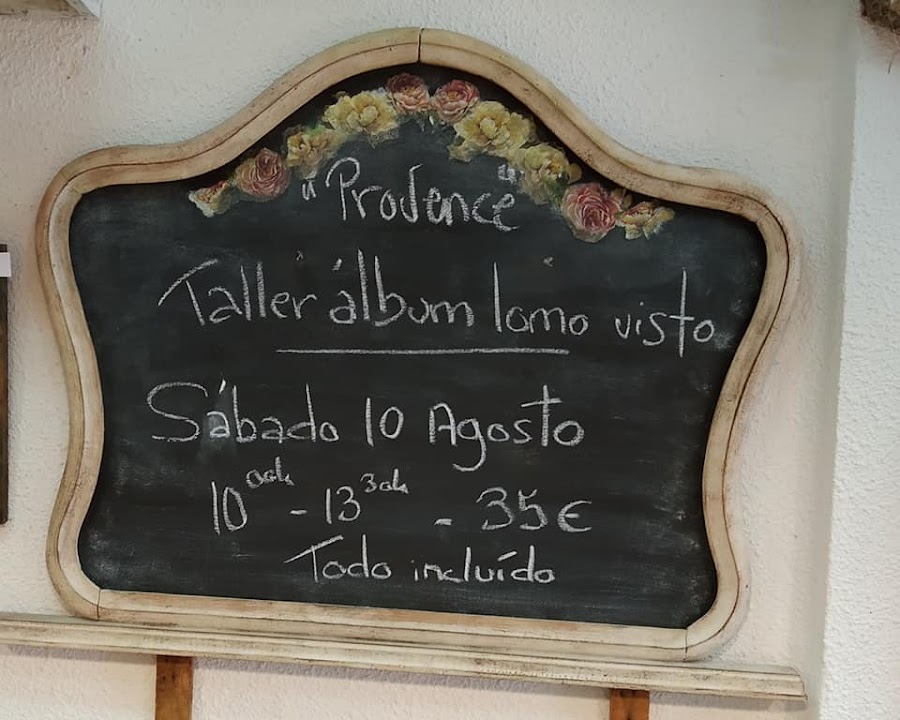 "Provence"
Taller álbum lomo visto
Sábado 10 Agosto
10 00h - 13 30h - 35€
Todo incluído